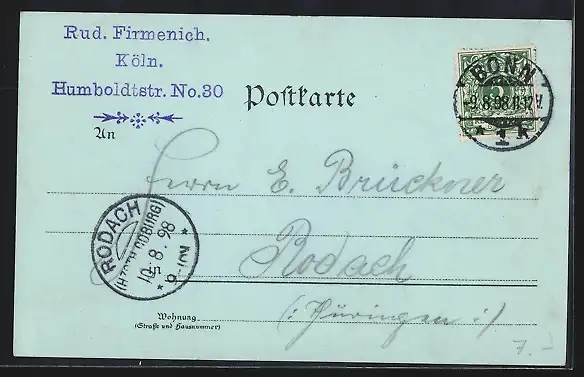 Rud. Firmenich.
Köln.
Humboldtstr. No.30
Postkarte
BONN
9.8.98.11-12V.
* 1 k.
5
An
Herrn E. Brückner
Rodach
(: Thüringen :)
RODACH
(HZGTH. COBURG)
10.8.98
* 9-10V. *
Wohnung
(Straße und Hausnummer)
7.-